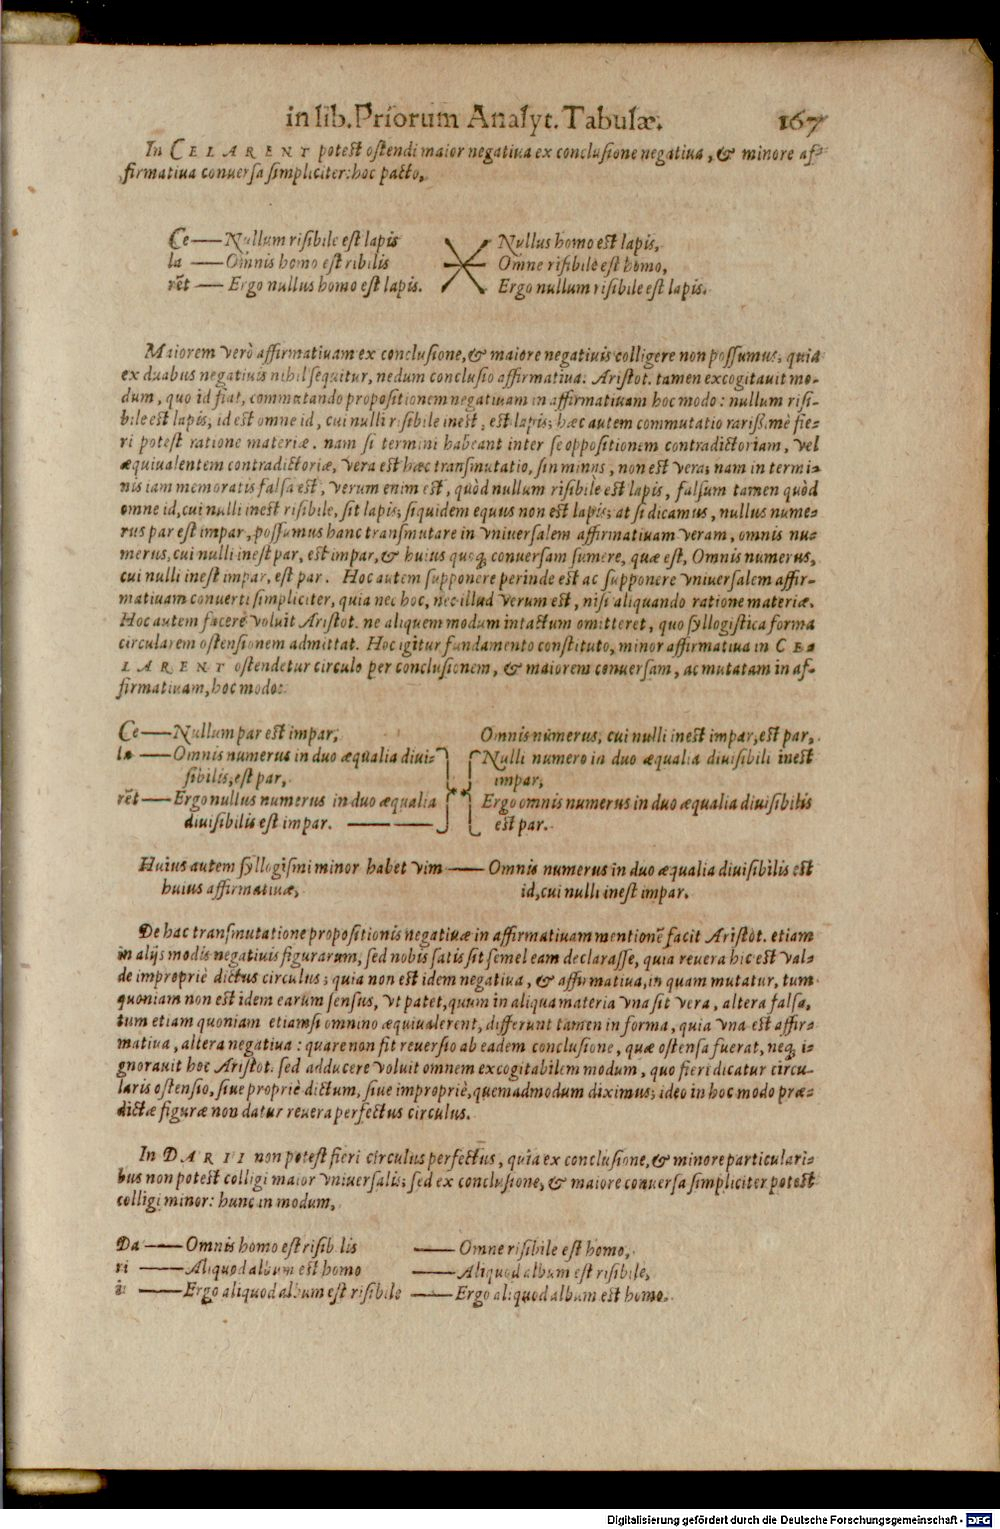 in lib. Priorum Analyt. Tabulæ. 167
In CELARENT potest ostendi maior negatiua ex conclusione negatiua, & minore af-
firmatiua conuersa simpliciter: hoc pacto,
Ce — Nullum risibile est lapis Nullus homo est lapis,
la — Omnis homo est ribilis Omne risibile est homo,
rēt — Ergo nullus homo est lapis. Ergo nullum risibile est lapis.
Maiorem verò affirmatiuam ex conclusione, & maiore negatiuis colligere non possumus, quia
ex duabus negatiuis nihil sequitur, nedum conclusio affirmatiua. Aristot. tamen excogitauit mo-
dum, quo id fiat, commutando propositionem negatiuam in affirmatiuam hoc modo: nullum risi-
bile est lapis, id est omne id, cui nulli risibile inest, est lapis; hæc autem commutatio rariß.mè fie-
ri potest ratione materiæ. nam si termini habeant inter se oppositionem contradictoriam, vel
æquiualentem contradictoriæ, vera est hæc transmutatio, sin minus, non est vera; nam in termi-
nis iam memoratis falsa est, verum enim est, quòd nullum risibile est lapis, falsum tamen quòd
omne id, cui nulli inest risibile, sit lapis; siquidem equus non est lapis; at si dicamus, nullus nume-
rus par est impar, possumus hanc transmutare in vniuersalem affirmatiuam veram, omnis nu-
merus, cui nulli inest par, est impar, & huius quoq; conuersam sumere, quæ est, Omnis numerus,
cui nulli inest impar, est par. Hoc autem supponere perinde est ac supponere vniuersalem affir-
matiuam conuerti simpliciter, quia nec hoc, nec illud verum est, nisi aliquando ratione materiæ.
Hoc autem facere voluit Aristot. ne aliquem modum intactum omitteret, quo syllogistica forma
circularem ostensionem admittat. Hoc igitur fundamento constituto, minor affirmatiua in CE-
LARENT ostendetur circulo per conclusionem, & maiorem conuersam, ac mutatam in af-
firmatiuam, hoc modo:
Ce — Nullum par est impar, Omnis numerus, cui nulli inest impar, est par,
la — Omnis numerus in duo æqualia diui- Nulli numero in duo æqualia diuisibili inest
sibilis, est par, impar,
rēt — Ergo nullus numerus in duo æqualia Ergo omnis numerus in duo æqualia diuisibilis
diuisibilis est impar. — est par.
Huius autem syllogismi minor habet vim — Omnis numerus in duo æqualia diuisibilis est
huius affirmatiuæ, id, cui nulli inest impar.
De hac transmutatione propositionis negatiuæ in affirmatiuam mentionē facit Aristot. etiam
in alijs modis negatiuis figurarum, sed nobis satis sit semel eam declarasse, quia reuera hic est val-
de impropriè dictus circulus; quia non est idem negatiua, & affirmatiua, in quam mutatur, tum
quoniam non est idem earum sensus, vt patet, quum in aliqua materia vna sit vera, altera falsa,
tum etiam quoniam etiamsi omnino æquiualerent, differunt tamen in forma, quia vna est affir-
matiua, altera negatiua: quare non fit reuersio ab eadem conclusione, quæ ostensa fuerat, neq; i-
gnorauit hoc Aristot. sed adducere voluit omnem excogitabilem modum, quo fieri dicatur circu-
laris ostensio, siue propriè dictum, siue impropriè, quemadmodum diximus; ideo in hoc modo præ-
dictæ figuræ non datur reuera perfectus circulus.
In DARII non potest fieri circulus perfectus, quia ex conclusione, & minore particulari-
bus non potest colligi maior vniuersalis; sed ex conclusione, & maiore conuersa simpliciter potest
colligi minor: hunc in modum,
Da — Omnis homo est risib lis — Omne risibile est homo,
ri — Aliquod album est homo — Aliquod album est risibile,
i — Ergo aliquod album est risibile — Ergo aliquod album est homo.
Digitalisierung gefördert durch die Deutsche Forschungsgemeinschaft - DFG